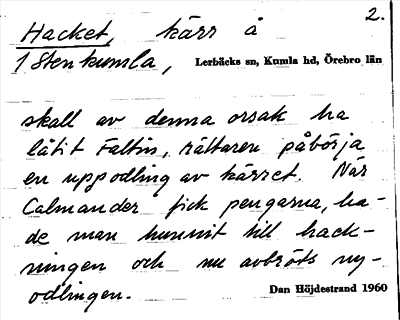 2.
Hacket, kärr å
1 Stenkumla, Lerbäcks sn, Kumla hd, Örebro län
skall av denna orsak ha
låtit Faltin, rättaren påbörja
en uppodling av kärret. När
Calmander fick pengarna, ha-
de man hunnit till hack-
ningen och nu avbröts ny-
odlingen. Dan Höjdestrand 1960